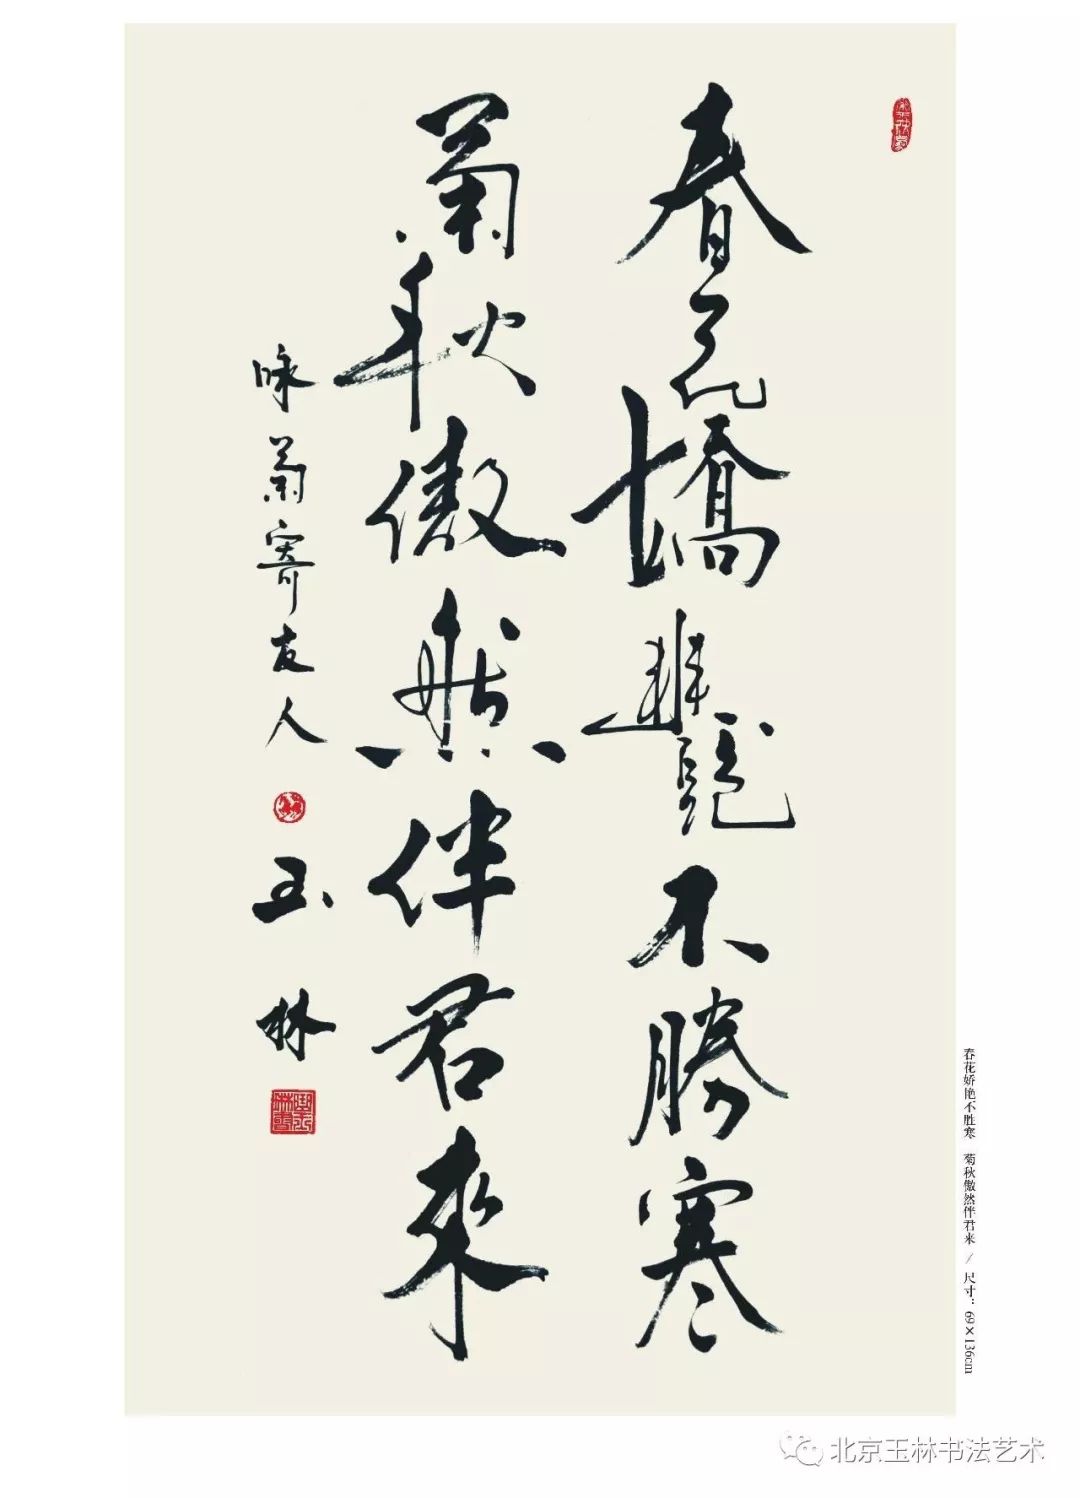 春花嬌艷不勝寒
菊秋傲然伴君来
咏菊寄友人
玉林
春花娇艳不胜寒 菊秋傲然伴君来 / 尺寸：69×136cm
北京玉林书法艺术